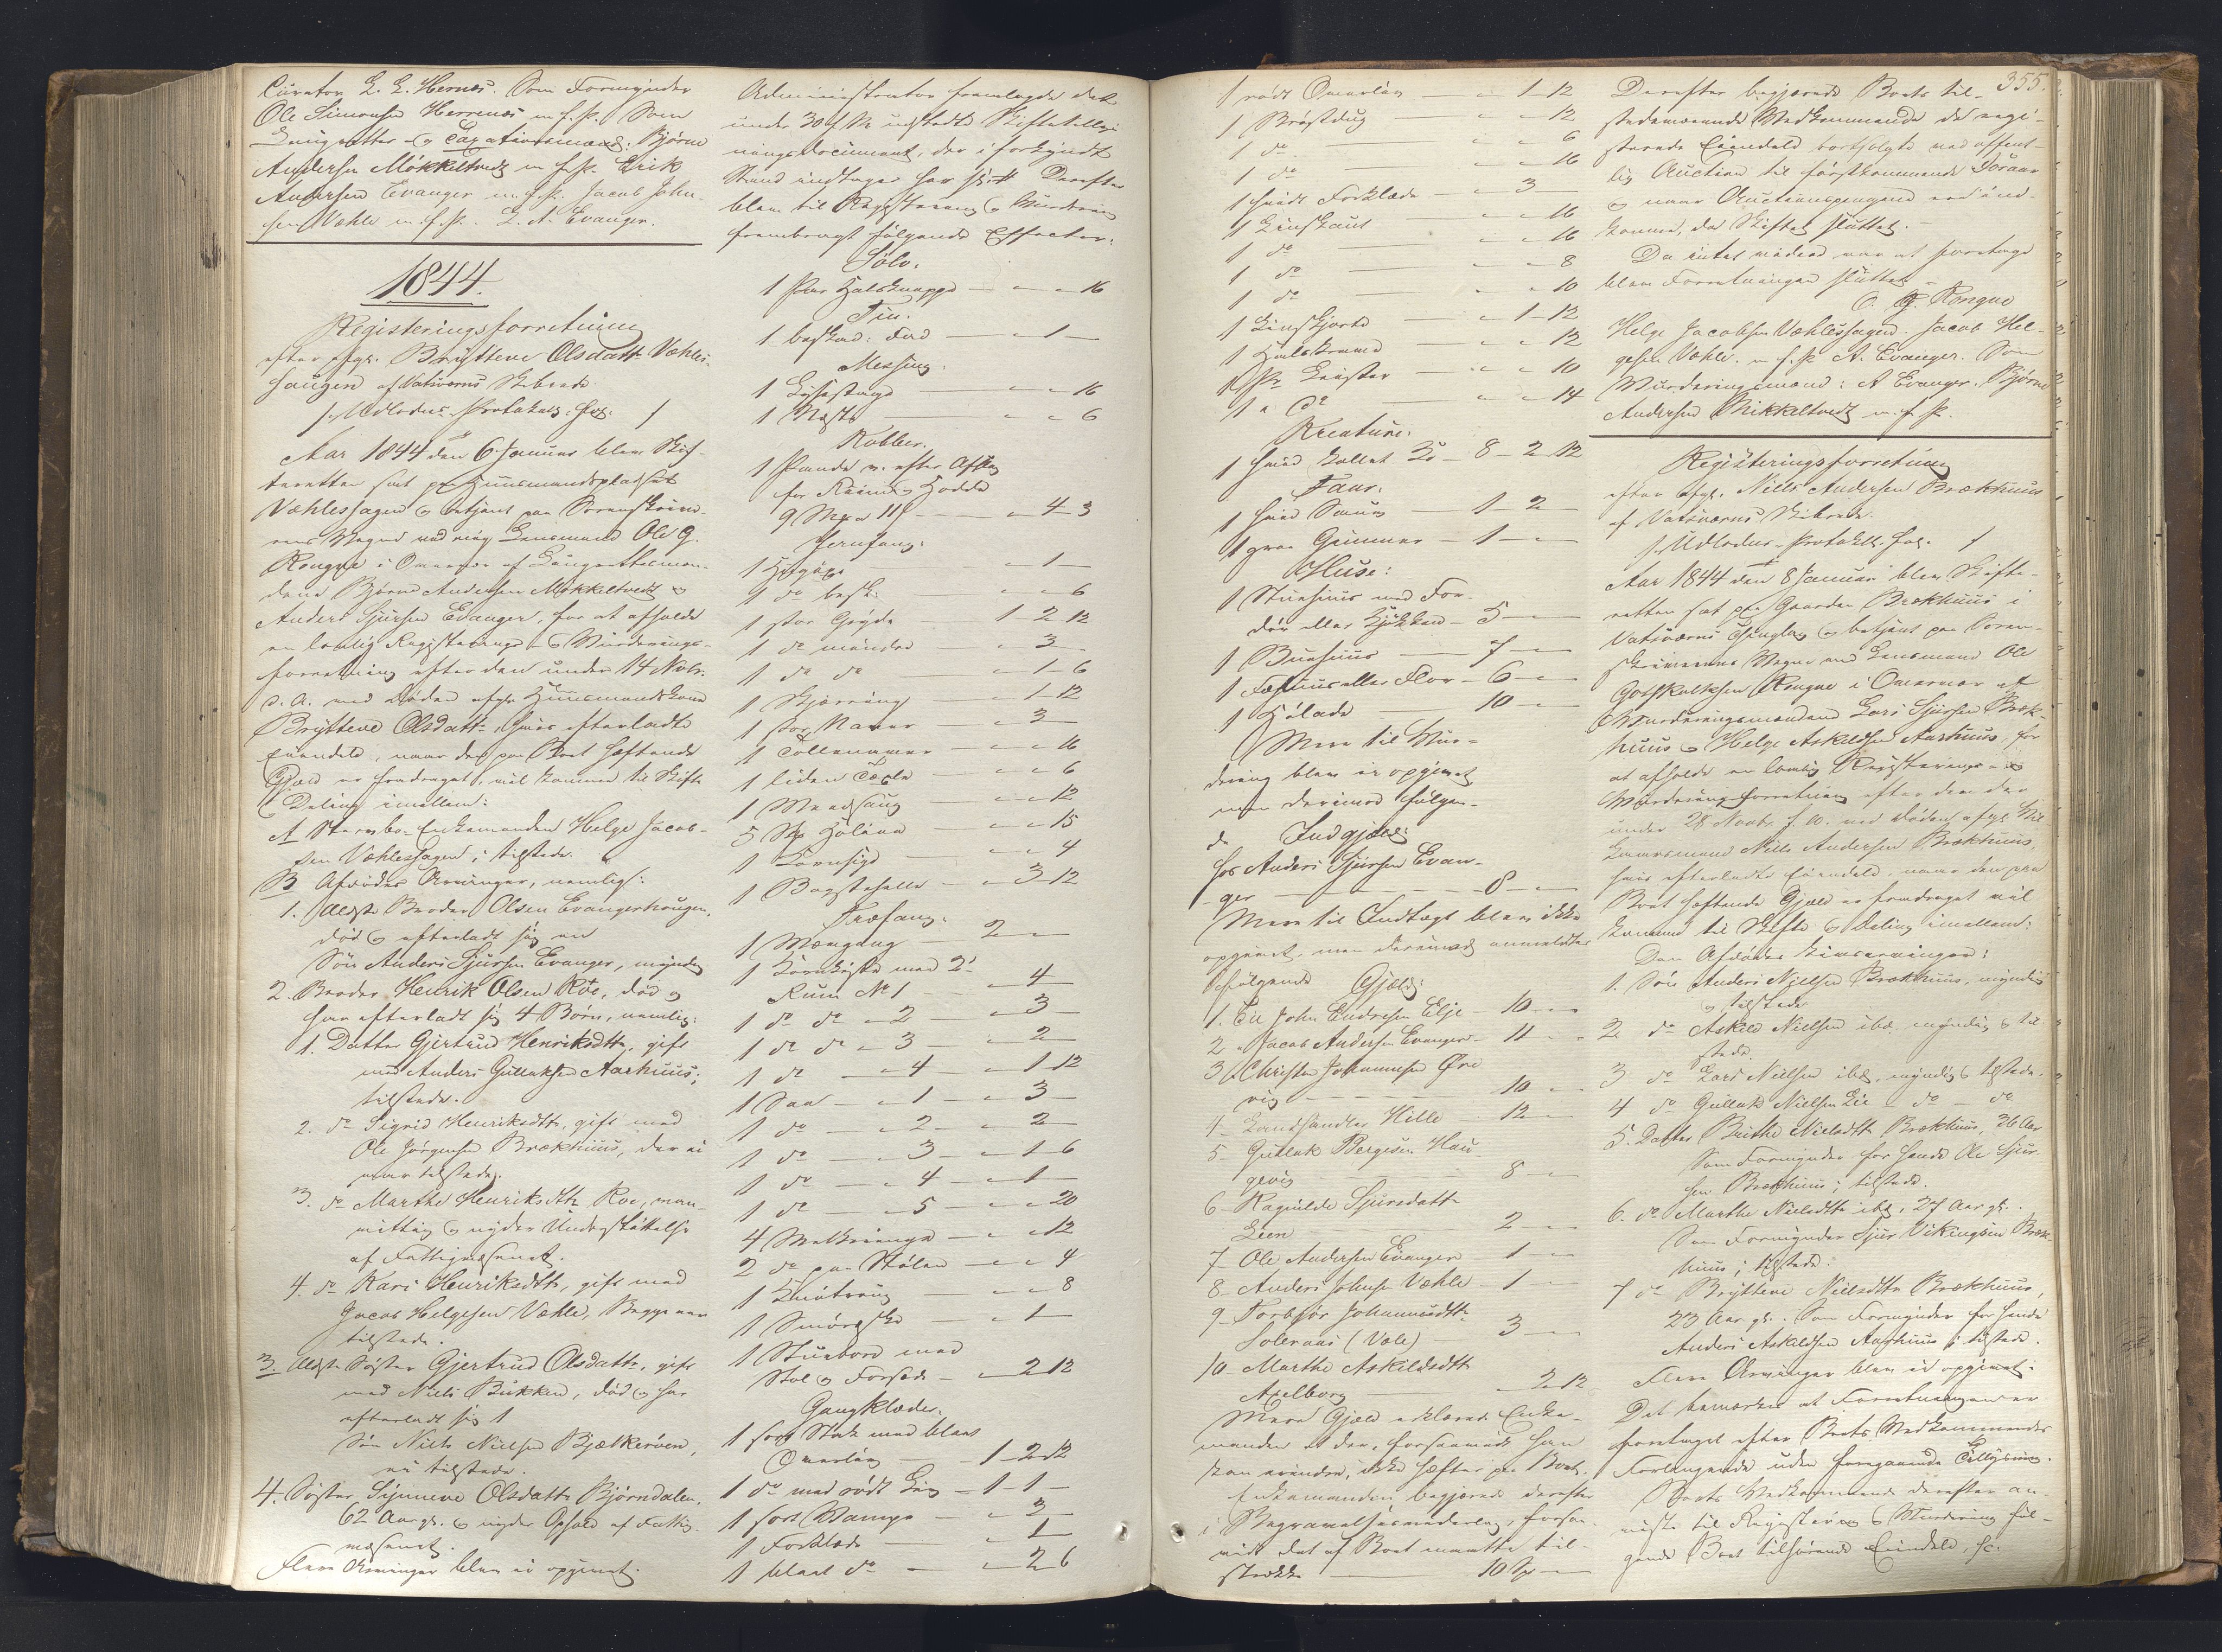 Curator L. L. Hernes. Som Formynder
Ole Simonsen Herrenes m. f. P. Som
Laugretter og Taxationsmænd: Bjørne
Andersen Møkkeltvedt m. f. P. Erik
Andersen Evanger m. f. P. Jacob John-
sen Væhle m. f. P. L. A. Evanger.
1844.
Registeringsforretning
efter afgl. Brytteve Olsdattr Væhles-
haugen af Vatsværns Skibrede
Udlodns. Protokols: fol:
Aar 1844 den 6 Januar blev Skif-
teretten sat paa Huusmandspladset
Væhleshagen og betjent paa Sorenskrive-
rens Vegne ved mig Lensmand Ole G.
Rongve i Overvær af Laugrettesmæn-
dene Bjørne Andersen Møkkeltvedt og
Anders Sjursen Evanger, for at afholde
en lovlig Registerings- og Vurderings-
forretning efter den under 14 Novbr.
d. A. ved Døden afgl. Huusmandskone
Brytteve Olsdattr, hvis efterladte
Eiendele, naar den paa Boet heftende
Gjæld er fradraget, vil komme til Skifte
og Deling imellem:
A Sterbo-Enkemanden Helge Jacob-
sen Væhleshagen; tilstede.
B Afdødes Arvinger, nemlig:
1. Ældste Broder Olsen Evangerhougen,
død og efterladt sig en
Søn Anders Sjursen Evanger, myndig
2. Broder Henrik Olsen Röe, død og
har efterladt sig 4 Børn, nemlig:
1. Datter Gjertrud Henriksdtr, gift
med Anders Gullaksen Aarhuus;
tilstede.
2. do Sigrid Henriksdtr, gift med
Ole Jørgensen Brækhuus, der ei
var tilstede.
3. do Marthe Henriksdtr Roe, van-
vittig og nyder Understøttelse
af Fattigvæsenet.
4. do Kari Henriksdtr, gift med
Jacob Helgesen Væhle, Begge var
tilstede.
3. Ældste Søster Gjertrud Olsdattr, gift
med Niels Bukken, død og har
efterladt sig 1
Søn Niels Nielsen Bjælkerøen,
ei tilstede.
4. Søster Synneve Olsdattr Bjørndalen,
62 Aar gl. og nyder Ophold af Fattig-
væsenet.
Flere Arvinger blev ei opgivet.
Administrator fremlagde det
under 30 f. M. udstedte Skiftetillys-
ningsdocument, der i forkyndt
Stand indtages saa ### Derefter
blev til Registrering og Vurdering
frembragt følgende Effecter:
Sølv:
1 Par Halsknappe — " " 16
Tin.
1 beskad: Fad — " 1 —
Messing.
1 Lysestage — " " 16
1 Mæste — " " 6
Kobber.
1 Pande m. efter Afslag
for Ruine og Hadde
9 Mrk a 11ß — " 4 3
Jernfang:
1 Hugøxe — " 1 —
1 do besk: — " " 6
1 stor Gryde — 1 2 12
1 do mindre — " 3 —
1 do do — " 1 6
1 Skjæring — " 1 12
1 stor Naver — " 3 —
1 Tollenaver — " " 16
1 liden Tægle — " " 6
1 Mandsaug — " " 12
5 Stk Höliaa — " " 15
1 Kornsigd — " " 4
1 Bagstehelle — " 3 12
Træfang:
1 Vævgang — 2 —
1 Kornkiste med 2
Rum No 1 — " 4 —
1 do do " 2 — " 3 —
1 do do " 3 — " 2 —
1 do — " 4 — " 1 12
1 Saa — " 1 — " 3 —
1 do — " 2 — " 2 —
1 do — " 3 — " 1 6
1 do — " 4 — " 1 —
1 do — " 5 — " " 20
4 Melkeringe — " " 12
2 do paa Stølen — " " 4
1 — " " 8
1 Smørøske — " 1 —
1 Stuebord med
Stol og Forsæde — " 2 12
Gangklæder.
1 sort Stak med blaat
Overliv — 1 2 12
1 do med rødt Liv — 1 1 —
1 sort Vampe — " 3 —
1 Forklæde — " 1 —
1 blaat do — " 2 6
1 rødt Overliv — " 1 12
1 Brøstdug — " " 12
1 do — " " 6
1 do — " " 16
1 hvidt Forklæde — " 3 —
1 Linskaut — " " 16
1 do — " " 16
1 do — " " 8
1 do — " " 10
1 Linskjorte — " 1 12
1 Halskrave — " " 12
1 Pr Leister — " " 10
1 " do — " " 14
Kreature:
1 hvid kollet Ko — 8 2 12
Faar:
1 hvid Sau — 1 2 —
1 graa Gimmer — 1 —
Huse:
1 Stuehuus med For-
dør eller Kjøkken — 5 —
1 Buehuus — 7 —
1 Fæhuus eller Flor — 6 —
1 Hølade — 10 —
Mere til Vur-
dering blev ei opgivet
men derimod følgen-
de Indgjæld:
hos Anders Sjursen Evan-
ger — 8 —
Mere til Indtægt blev ikke
opgivet, men derimod anmeldtes
følgende Gjæld:
1. Til John Endresen Elje — 10 —
2 " Jacob Andersen Evanger — 11 —
3 " Christen Johannesen Øre
vig — 10 —
4 — Landhandler Hille — 12 —
5 — Gullak Bergesen Hau
gevig — 8 —
6 — Ragnilde Sjursdattr
Leen — 2 —
7 — Ole Andersen Evanger — 1 —
8 — Anders Johnsen Væhle — 1 —
9 — Torbjør Johannesdtr
Solevaas (Vole) — 3 —
10 — Marthe Askildsdtr
Axelborg — 2 12
Mere Gjæld erklærede Enke-
manden at der, forsaavidt han
kan erindre, ikke hæfter paa Boet.
Enkemanden begjærede derefter
i Begravelsesvederlag, forsaa-
vidt det af Boet maatte til-
strække — 10 Sp —
355.
Derefter begjærede Boets til-
stedeværende Vedkommende de regi-
sterede Eiendele bortsolgte ved offent-
lig Auction til førstkommende Foraar
og naar Auctionspengene ere ind-
komne, da Skiftet sluttet. —
Da intet videre var at foretage
blev Forretningen sluttet —
O. G. Rongve
Helge Jacobsen Væhleshagen. Jacob Hel-
gesen Væhle. m. f. P. A. Evanger. Som
Vurderingsmænd: A Evanger. Bjørne
Andersen Mikkeltvedt m. f. P.
Registeringsforretning
efter afgl. Niels Andersen Brækhuus
af Vatsværns Skibrede.
Udlodns-Protokll. fol.
Aar 1844 den 8 Januar blev Skifte-
retten sat paa Gaarden Brækhuus i
Vatsværns Thinglag og betjent paa Soren-
skriverens Vegne ved Lensmand Ole
Gotskalksen Rongve i Overvær af
Vurderingsmændene Lars Sjursen Bræk-
huus og Helge Askildsen Aarhuus, for
at afholde en lovlig Registerings- og
Vurderings-forretning efter den der
under 28 Novbr f. A. ved Døden afgl. Vil-
kaarsmand Niels Andersen Brækhuus,
hvis efterladte Eiendele, naar den paa
Boet heftende Gjæld er fradraget vil
komme til Skifte og Deling imellem:
Den Afdødes Livsarvinger:
1. Søn Anders Nielsen Brækhuus, myndig
og tilstede
2 do Askild Nielsen ibd. myndig og til
stede.
3 do Lars Nielsen ibd. myndig og tilstede.
4 do Gullak Nielsen Lie — do — do
5. Datter Brithe Nielsdtr Brækhuus, 36 Aar
Som Formynder for hende Ole Sjur-
sen Brækhuus; tilstede.
6. do Marthe Nielsdtr ibd, 27 Aar gl.
Som Formynder Sjur Vikingsen Bræk-
huus; tilstede.
7 do Brytteve Nielsdtr Brækhuus,
23 Aar gl. Som Formynder for hende
Anders Askildsen Aarhuus; tilstede.
Flere Arvinger blev ei opgivet.
Det bemærkes at Forretningen er
foretaget efter Boets Vedkommendes
Forlangende uden foregaaende Tillysning.
Boets Vedkommende derefter an-
viiste til Registrering og Vurdering føl-
gende Boet tilhørende Eiendele, sc.